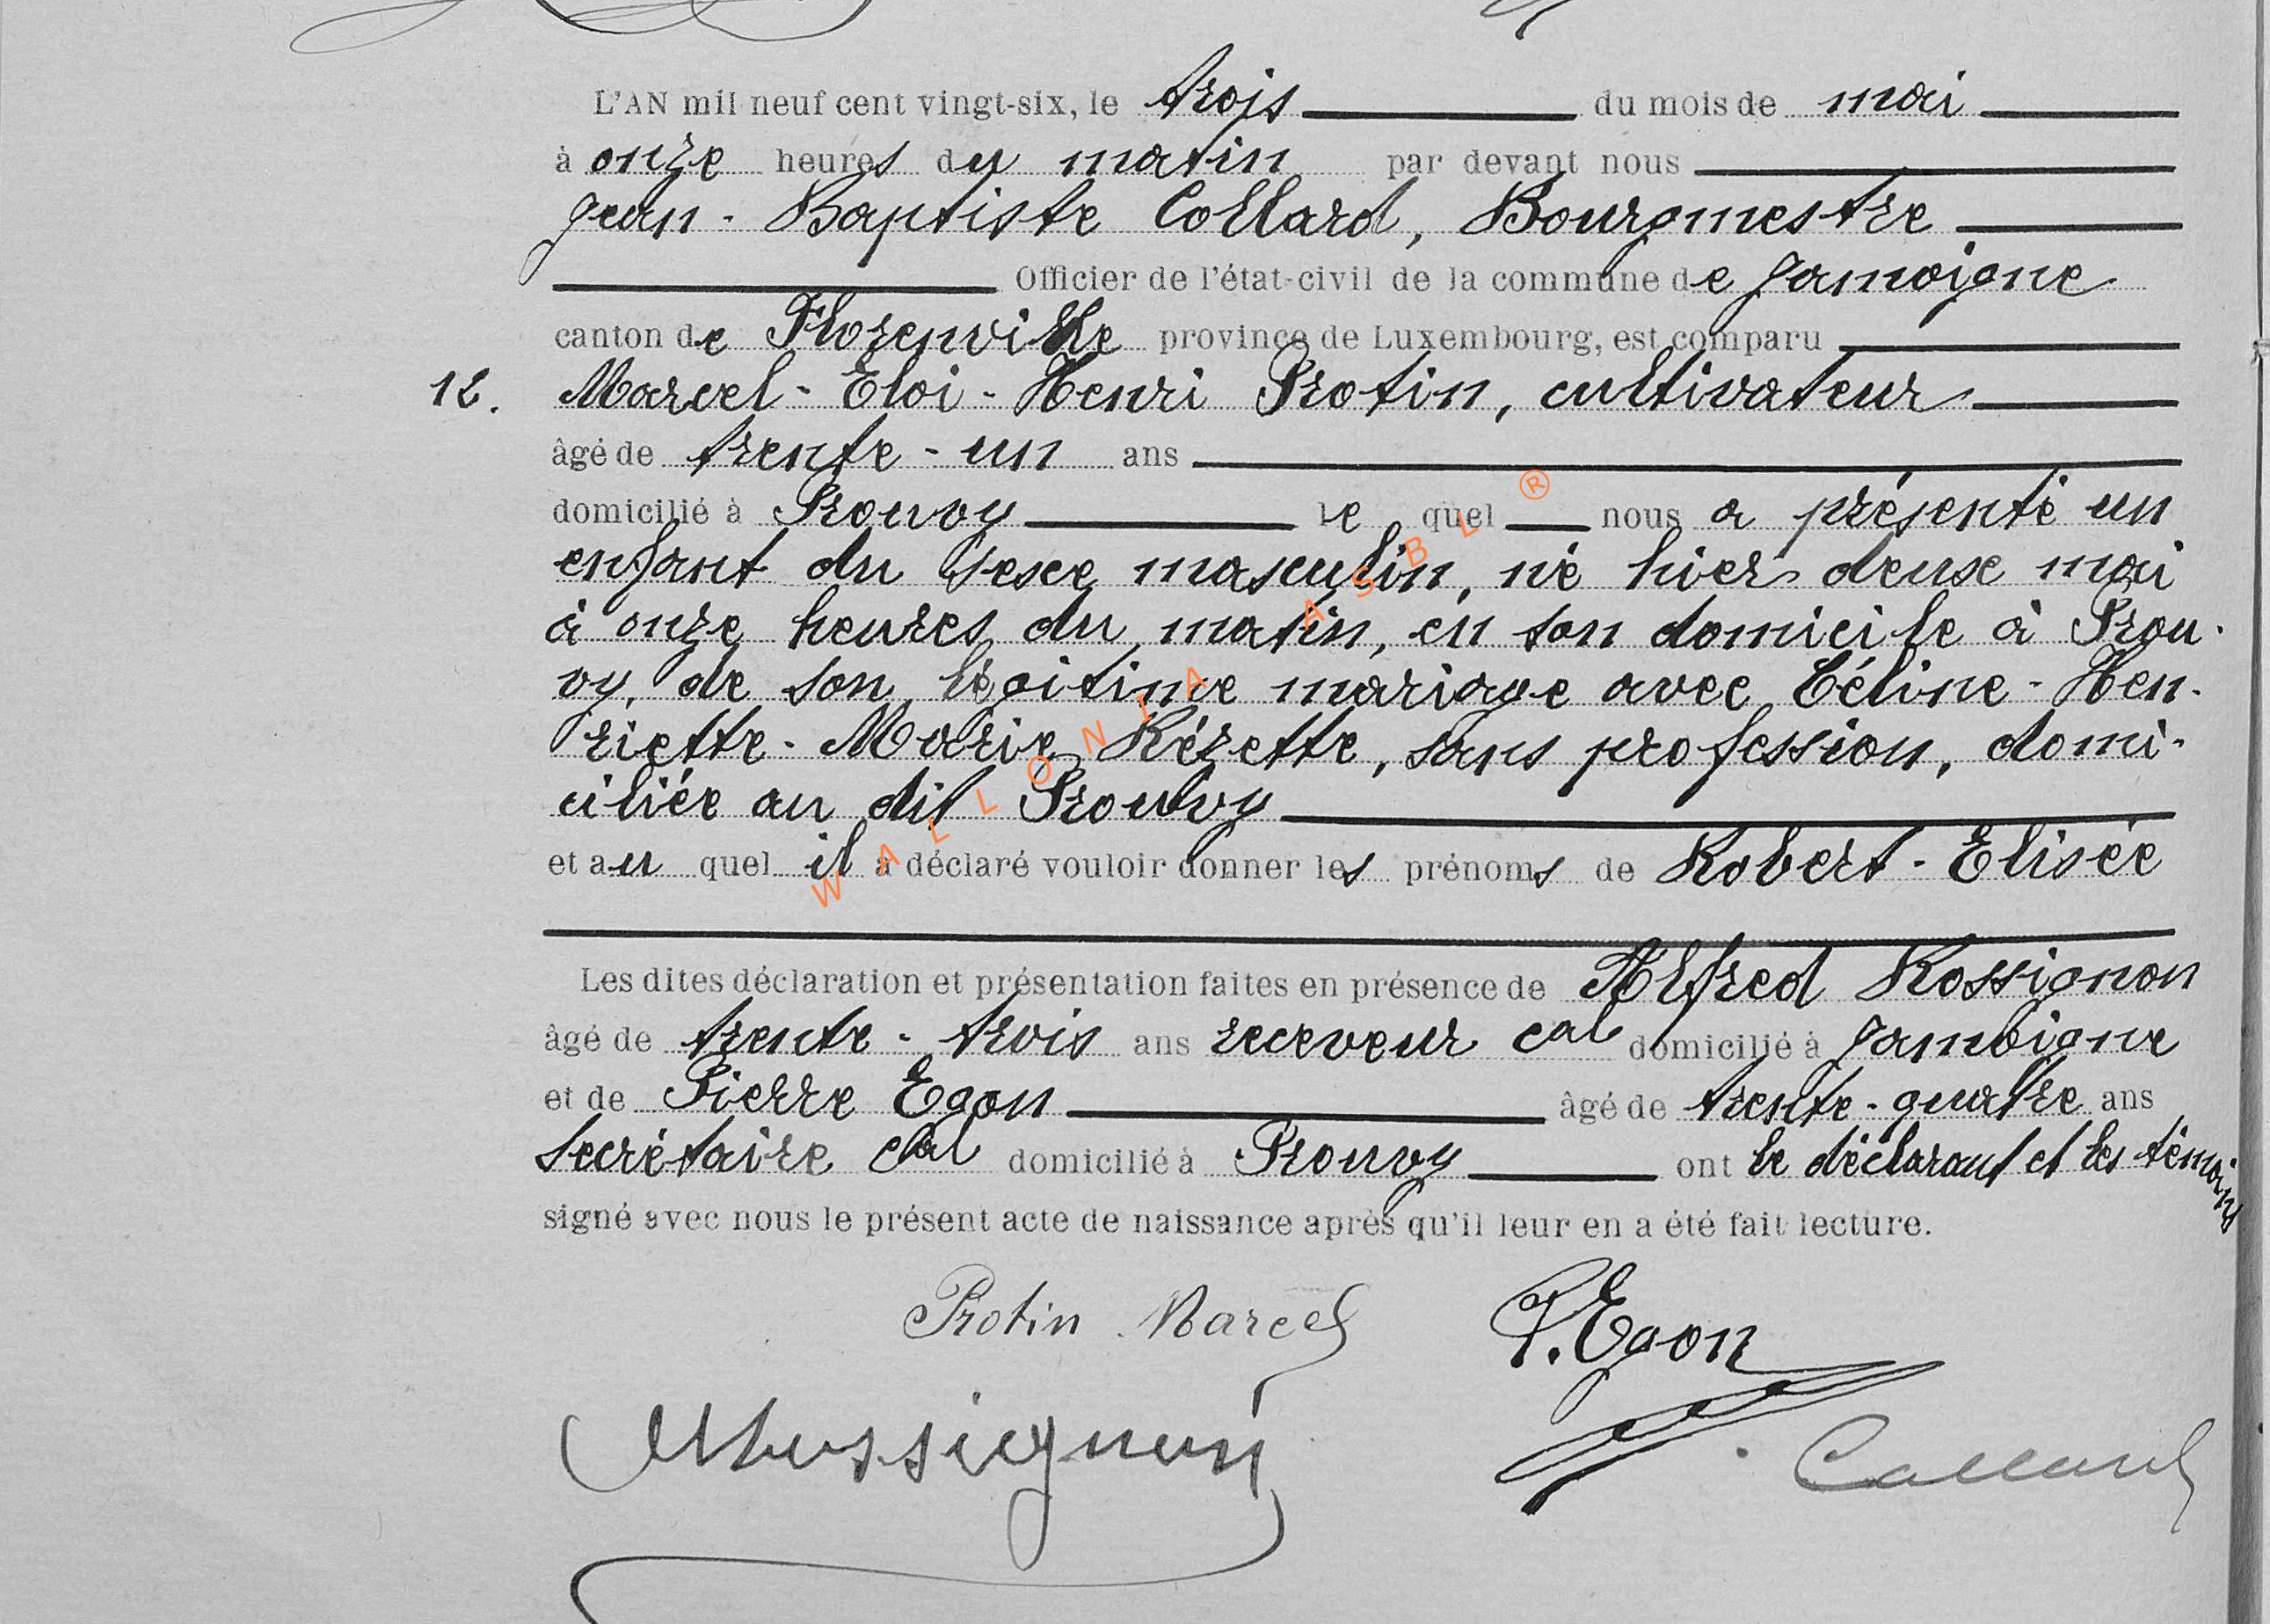 L'AN mil neuf cent vingt-six, le trois du mois de mai
à onze heures du matin par devant nous
Jean-Baptiste Collard, Bourgmestre
Officier de l'état-civil de la commune de Jamoigne
canton de Florenville province de Luxembourg, est comparu
12. Marcel-Eloi-Henri Protin, cultivateur
âgé de trente-un ans
domicilié à Prouvy le quel nous a présenté un
enfant du sexe masculin, né hier deux mai
à onze heures du matin, en son domicile à Prou-
vy, de son légitime mariage avec Céline-Hen-
riette-Marie Rézette, sans profession, domi-
ciliée au dit Prouvy
et au quel il a déclaré vouloir donner les prénoms de Robert-Elisée
Les dites déclaration et présentation faites en présence de Alfred Rossignon
âgé de trente-trois ans receveur cal domicilié à Jamoigne
et de Pierre Egon âgé de trente-quatre ans
secrétaire cal domicilié à Prouvy ont le déclarant et les témoins
signé avec nous le présent acte de naissance après qu'il leur en a été fait lecture.
Protin Marcel P. Egon
ARossignon Collard
WALLONIA ASBL ®